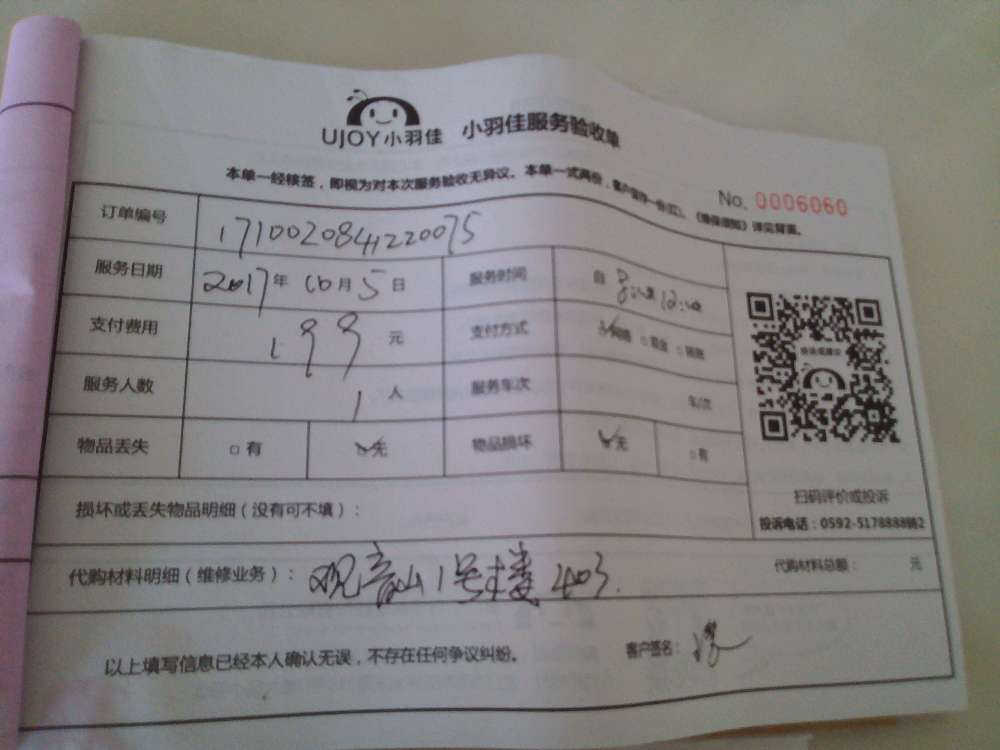 UJOY小羽佳 小羽佳服务验收单
本单一经核签,即视为对本次服务验收无异议。本单一式两份,客户留存一份(红),《维保须知》详见背面。
No. 0006060
订单编号 1710020841220075
服务日期 2017年10月5日 服务时间 自 8:00 12:00
支付费用 199元 支付方式 网络 □现金 □转账
服务人数 1人 服务车次 车/次
物品丢失 □有 无 物品损坏 无 □有
扫码评价或投诉
损坏或丢失物品明细(没有可不填):
投诉电话:0592-5178888转2
代购材料明细(维修业务): 观音山1号楼2403. 代购材料总额: 元
以上填写信息已经本人确认无误,不存在任何争议纠纷。 客户签名: